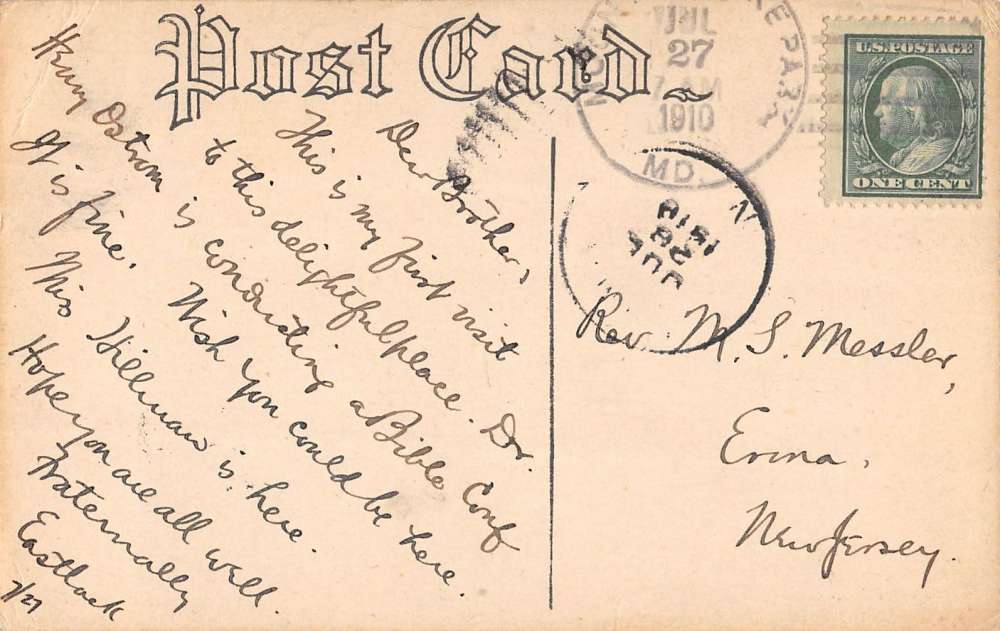 Post Card
JUL
27
7 AM
1910
MD.
U.S. POSTAGE
ONE CENT
JUL
28
1910
Dear Brother,
This is my first visit
to this delightful place. Dr.
Henry Ostrom is conducting a Bible Conf
It is fine. Wish you could be here.
Miss Hillman is here.
Hope you are all well.
Fraternally
Eastlack
7/27
Rev. M. S. Messler,
Erma,
New Jersey.